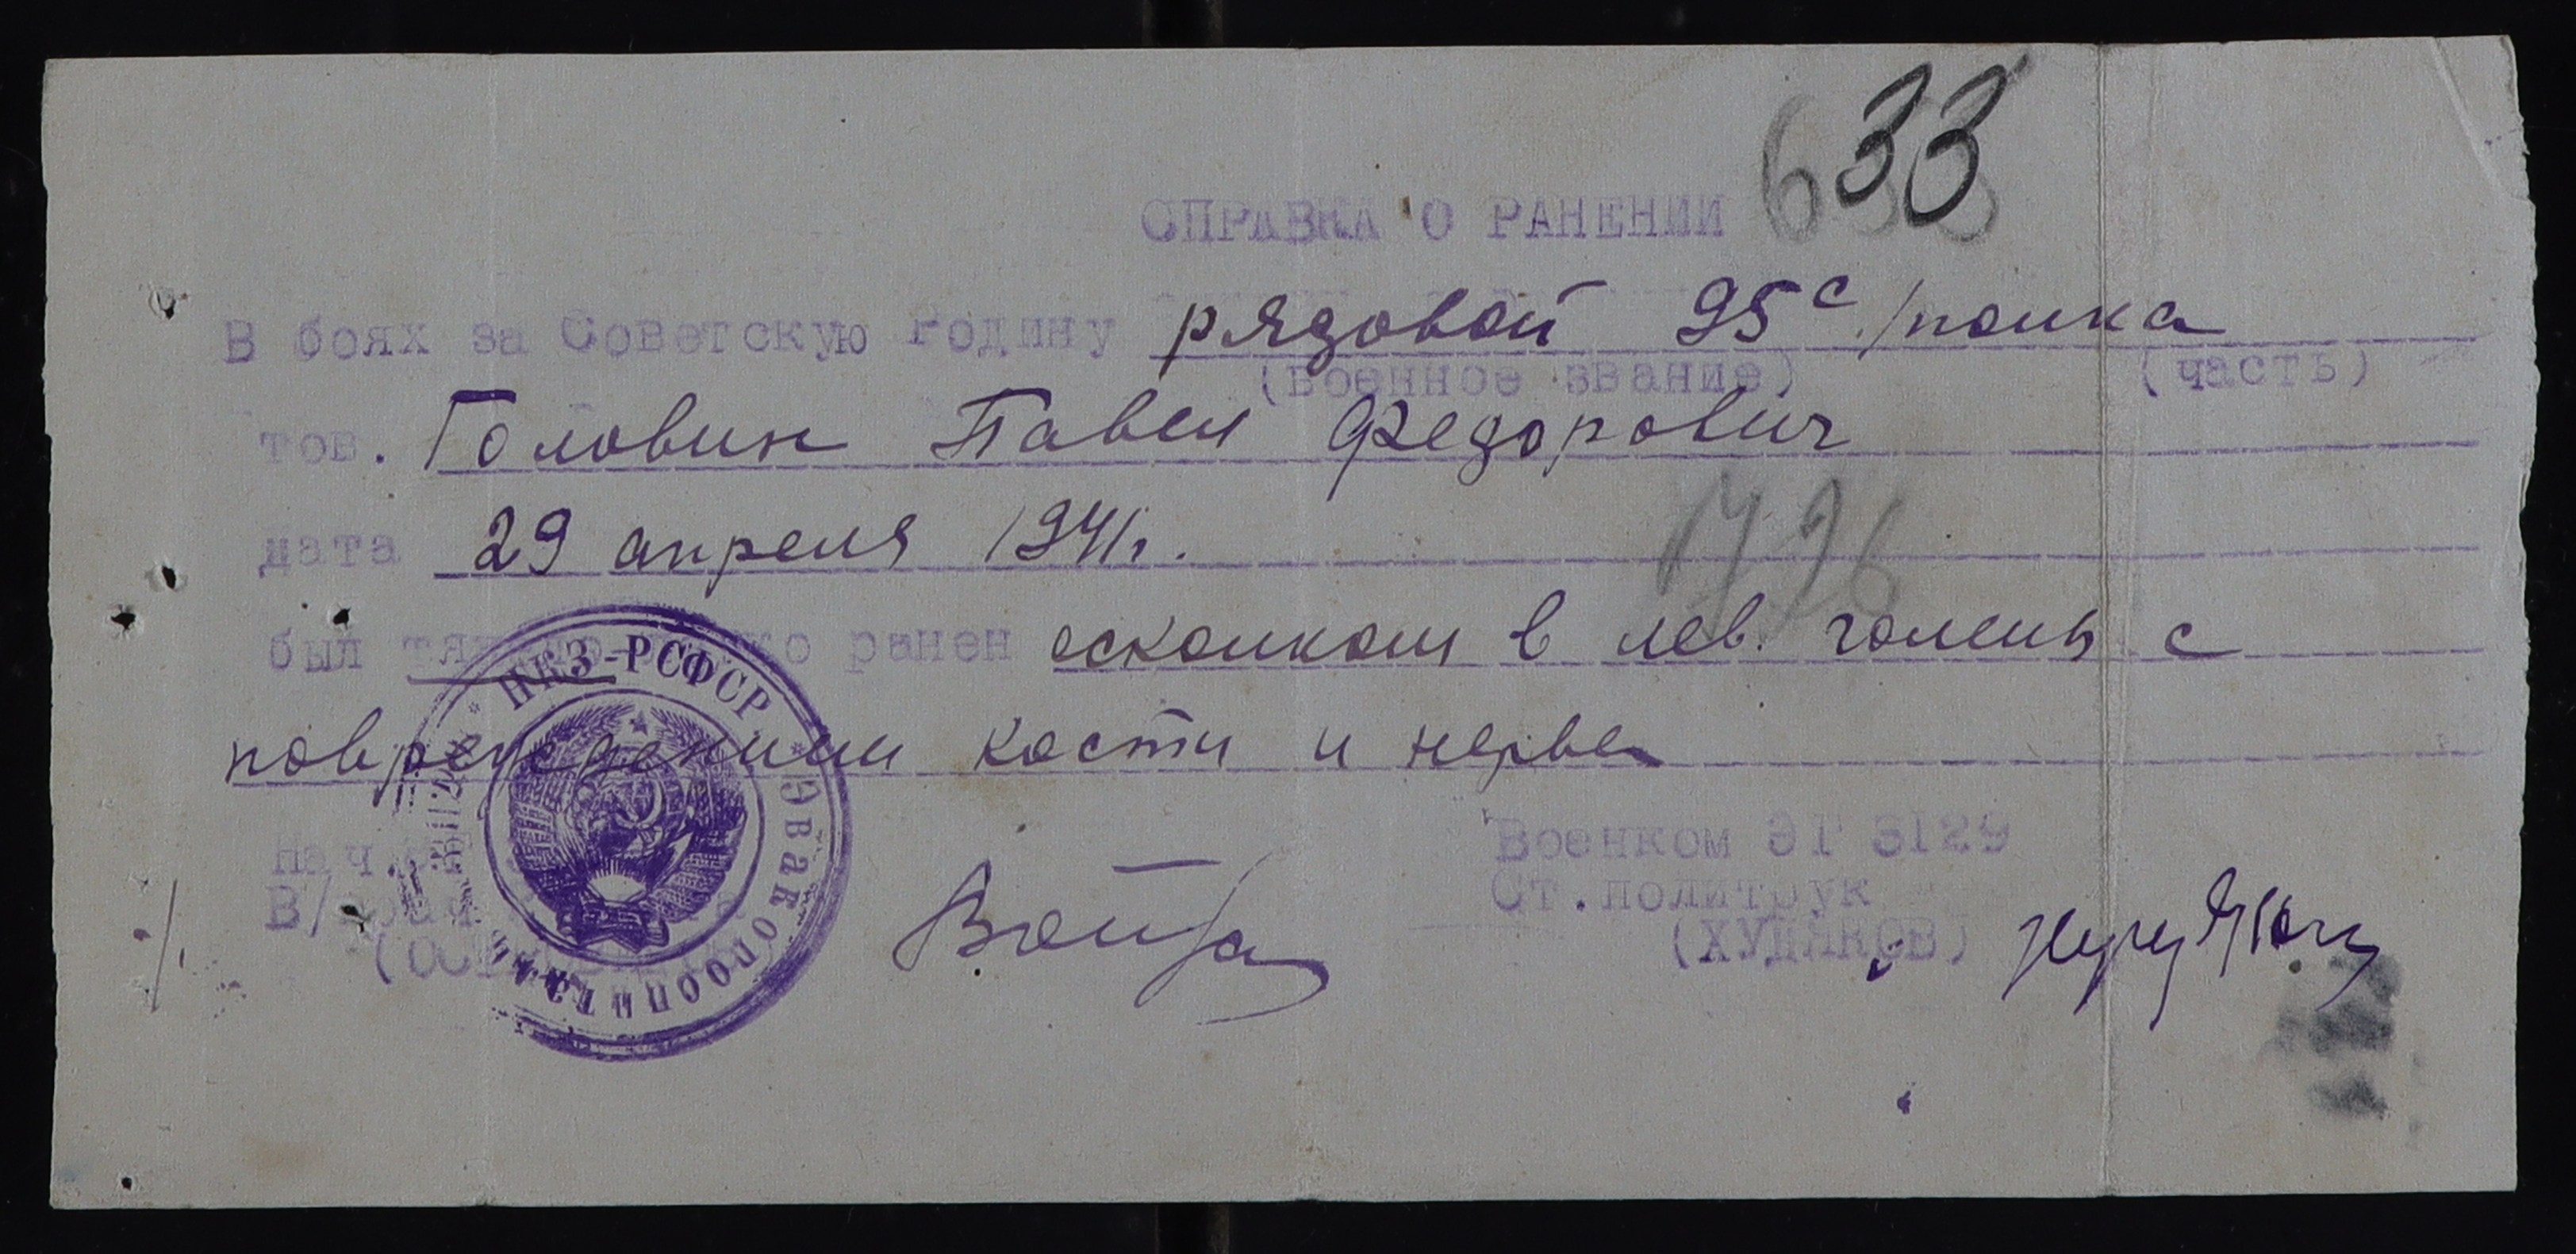 633
СПРАВКА О РАНЕНИИ
В боях за Советскую Родину рядовой 95 с/полка
(военное звание) (часть)
тов. Головин Павел Федорович
дата 29 апреля 1941г.
1726
был тяжело ранен осколком в лев. голень с
повреждением кости и нерва
НКЗ-РСФСР * Эвакогоспиталь
Нач.
В/врач
Военком ЭГ 3129
Ст.политрук
(ХУДЯКОВ)